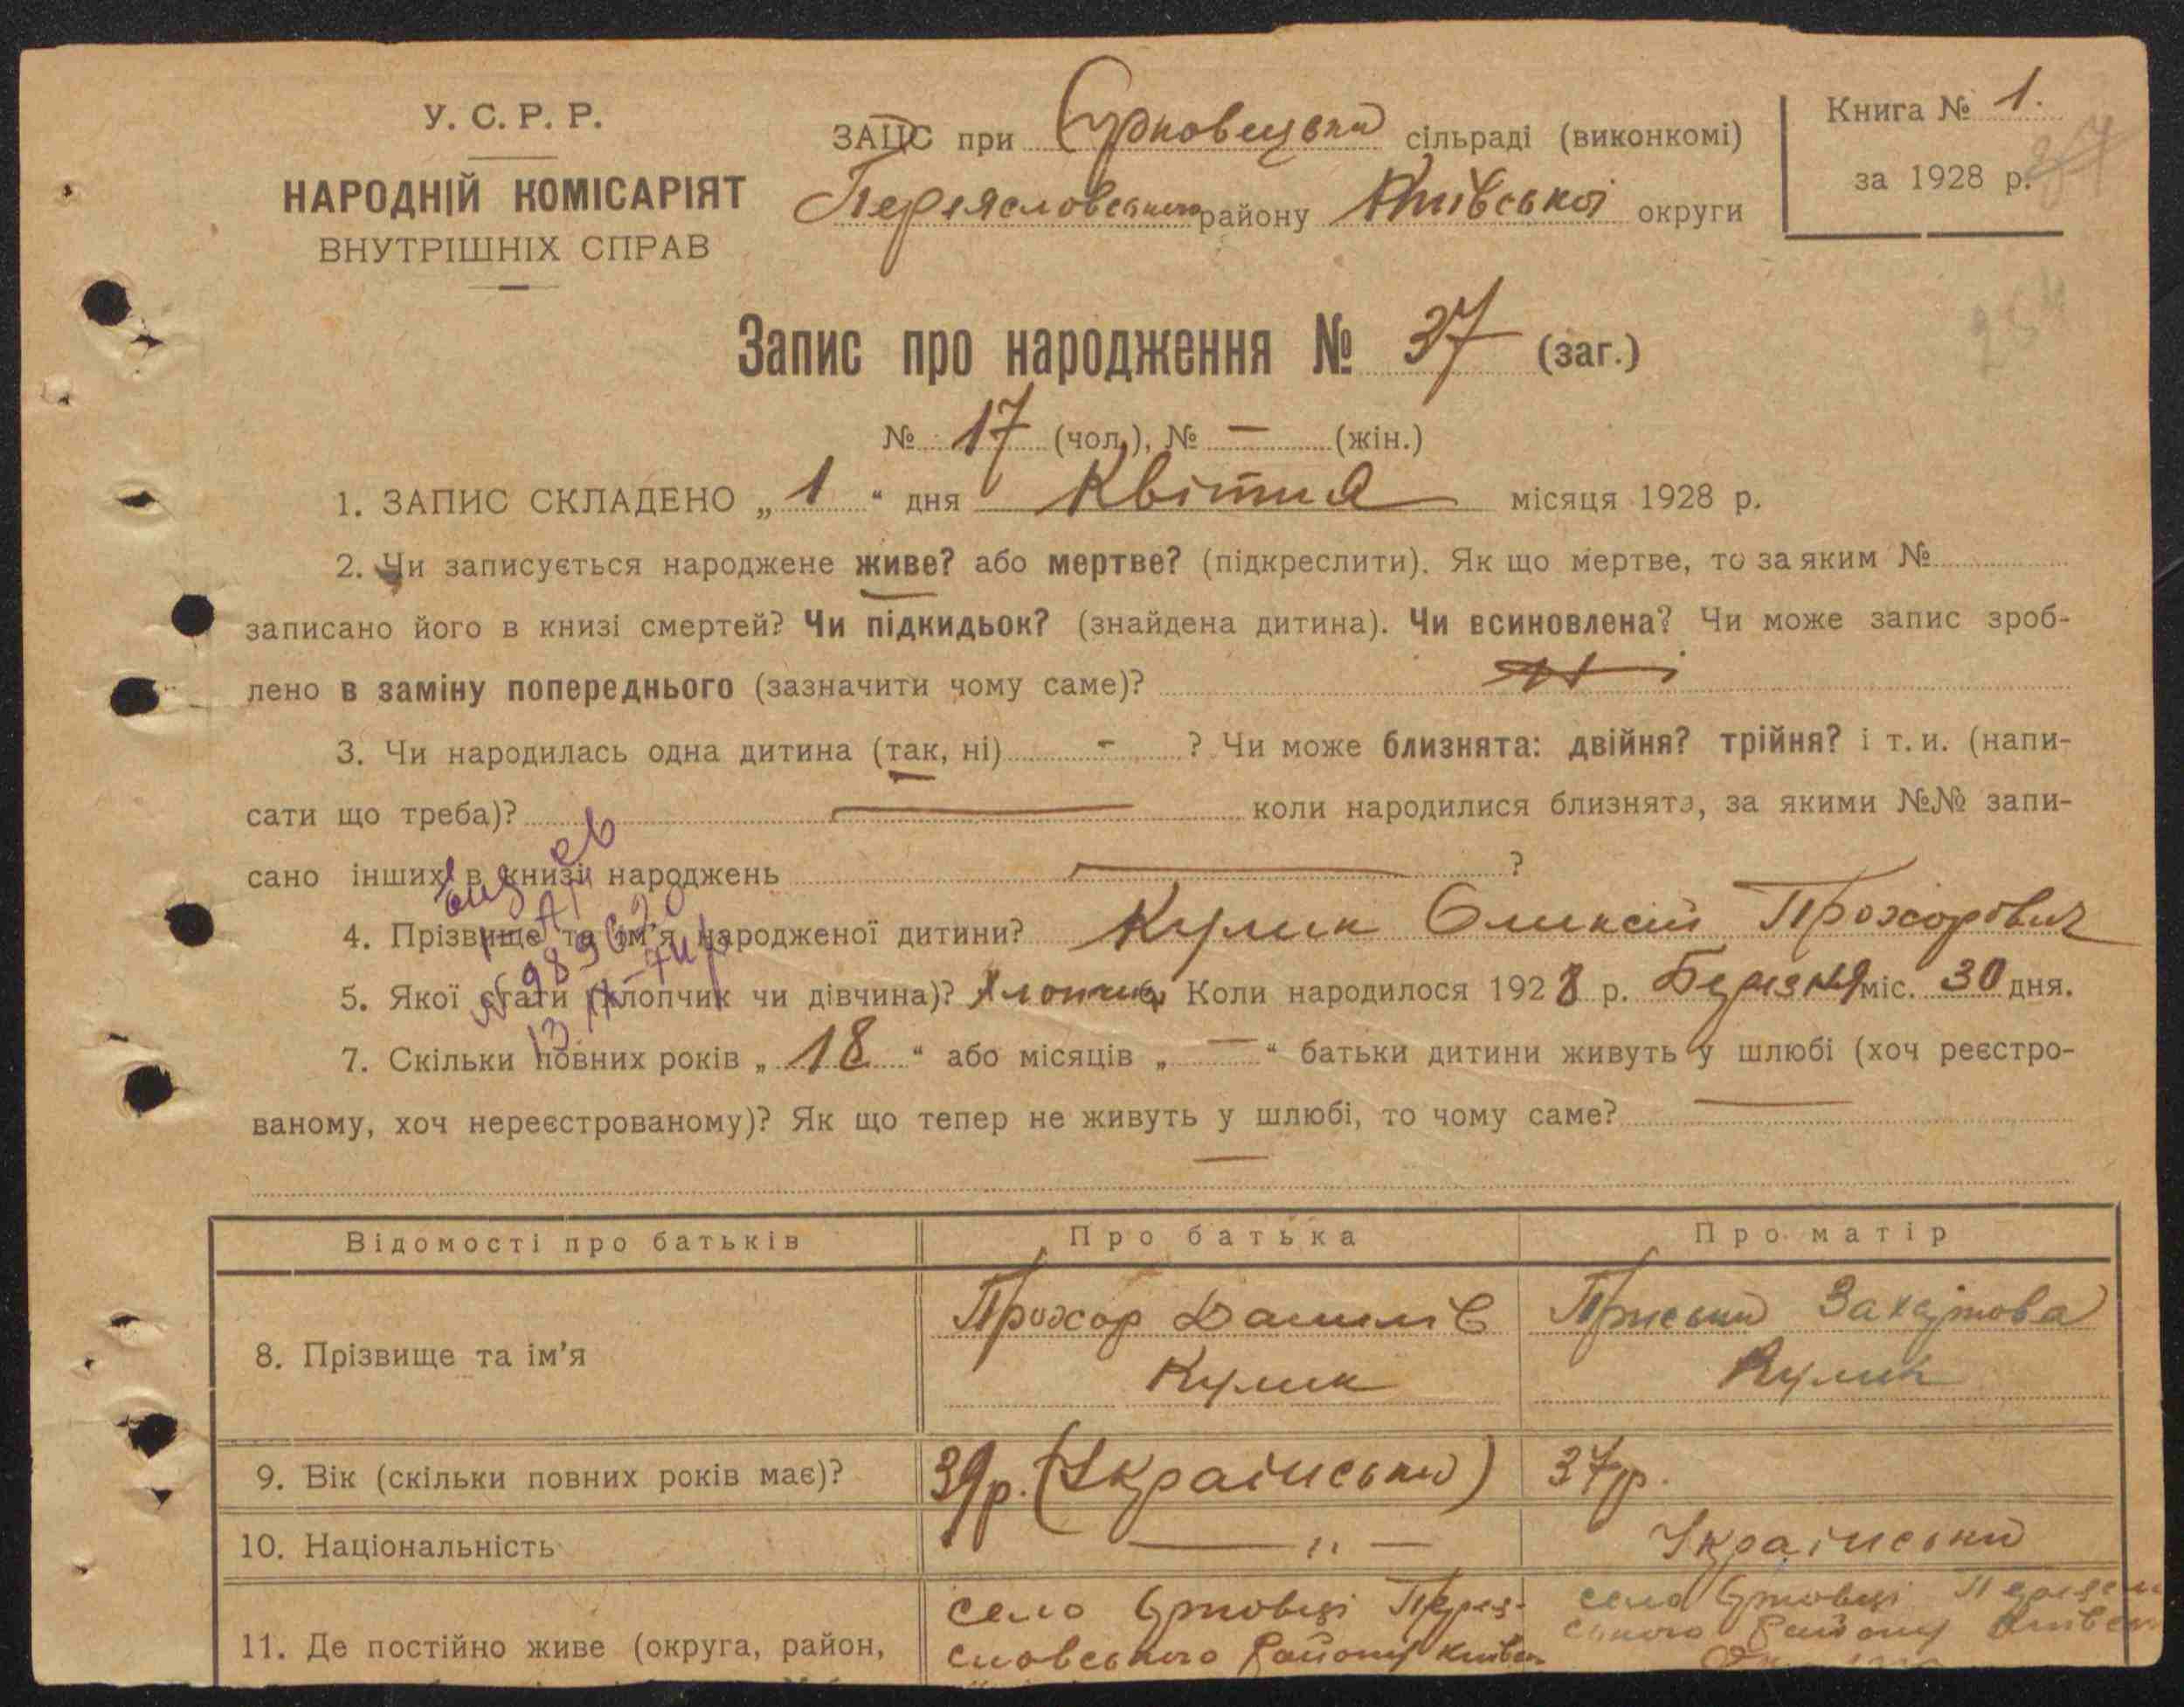 У. С. Р. Р.
НАРОДНІЙ КОМІСАРІЯТ
ВНУТРІШНІХ СПРАВ
ЗАЦС при сільраді (виконкомі)
Переясловського району Київської округи
Книга № 1.
за 1928 р.
Запис про народження № 37 (заг.)
№ 17 (чол.), № — (жін.)
1. ЗАПИС СКЛАДЕНО „ 1 “ дня Квітня місяця 1928 р.
2. Чи записується народжене живе? або мертве? (підкреслити). Як що мертве, то за яким №
записано його в книзі смертей? Чи підкидьок? (знайдена дитина). Чи всиновлена? Чи може запис зроб-
лено в заміну попереднього (зазначити чому саме)? Ні
3. Чи народилась одна дитина (так, ні) - ? Чи може близнята: двійня? трійня? і т. и. (напи-
сати що треба)? — коли народилися близнята, за якими №№ запи-
сано інших в книзі народжень — ?
4. Прізвище та ім'я народженої дитини? Кулик Олексій Прохорович
5. Якої стати (хлопчик чи дівчина)? Хлопчик Коли народилося 1928 р. Березня міс. 30 дня.
7. Скільки повних років „ 18 “ або місяців „ — “ батьки дитини живуть у шлюбі (хоч реєстро-
ваному, хоч нереєстрованому)? Як що тепер не живуть у шлюбі, то чому саме? —
—
Відомості про батьків Про батька Про матір
8. Прізвище та ім'я Прохор Данилів Кулик Приська Захарова Кулик
9. Вік (скільки повних років має)? 39 р. (Український) 37 р.
10. Національність — „ — Український
11. Де постійно живе (округа, район, село Переясловського Району село Району